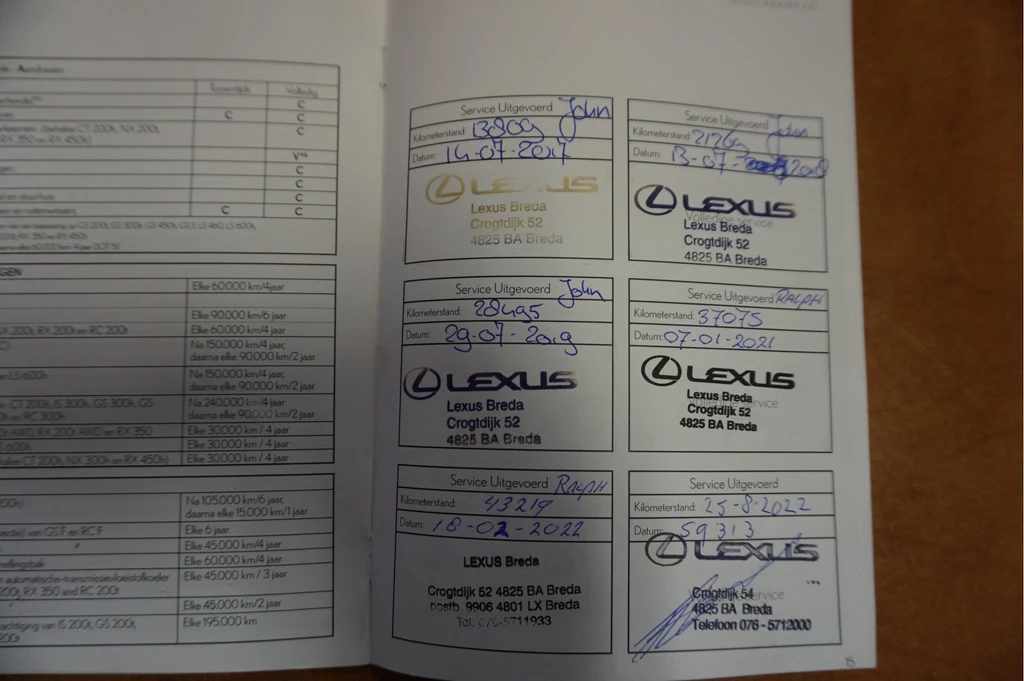 Tussentijds Volledig
C
C C
C
(behalve CT 200h, NX 200t,
RX 350 en RX 450h)
V**
C
C
C
en ruitenwissers C C
GEN
Elke 60.000 km/4 jaar
Elke 90.000 km/6 jaar
RX 200t en RC 200t Elke 60.000 km/4 jaar
Na 150.000 km/4 jaar,
daarna elke 90.000 km/2 jaar
en LS 600h Na 150.000 km/4 jaar,
daarna elke 90.000 km/2 jaar
CT 200h, IS 300h, GS 300h, GS Na 240.000 km/4 jaar
en RC 300h daarna elke 90.000 km/2 jaar
AWD, RX 200t AWD en RX 350 Elke 30.000 km / 4 jaar
600h Elke 30.000 km / 4 jaar
CT 200h, NX 300h en RX 450h) Elke 30.000 km / 4 jaar
Na 105.000 km/6 jaar,
daarna elke 15.000 km/1 jaar
van GS F en RC F Elke 6 jaar
Elke 45.000 km/4 jaar
Elke 60.000 km/4 jaar
automatische-transmissievloeistofkoeler Elke 45.000 km / 3 jaar
200t, RX 350 and RC 200t
Elke 45.000 km/2 jaar
van IS 200t, GS 200t, Elke 195.000 km
200t
Service Uitgevoerd John
Kilometerstand: 13809
Datum: 14-07-2017
LEXUS
Lexus Breda
Crogtdijk 52
4825 BA Breda
Service Uitgevoerd John
Kilometerstand: 21769
Datum: 13-07-2018
LEXUS
Volledige service
Lexus Breda
Crogtdijk 52
4825 BA Breda
Service Uitgevoerd John
Kilometerstand: 28495
Datum: 29-07-2019
LEXUS
Lexus Breda
Crogtdijk 52
4825 BA Breda
Service Uitgevoerd RALPH
Kilometerstand: 37075
Datum: 07-01-2021
LEXUS
Lexus Breda
Volledige service
Crogtdijk 52
4825 BA Breda
Service Uitgevoerd RALPH
Kilometerstand: 43219
Datum: 18-02-2022
LEXUS Breda
Crogtdijk 52 4825 BA Breda
postb. 9906 4801 LX Breda
Tel. 076-5711933
Service Uitgevoerd
Kilometerstand: 25-8-2022
Datum: 59313
LEXUS
Crogtdijk 54
service
4825 BA Breda
Telefoon 076 - 5712000
15